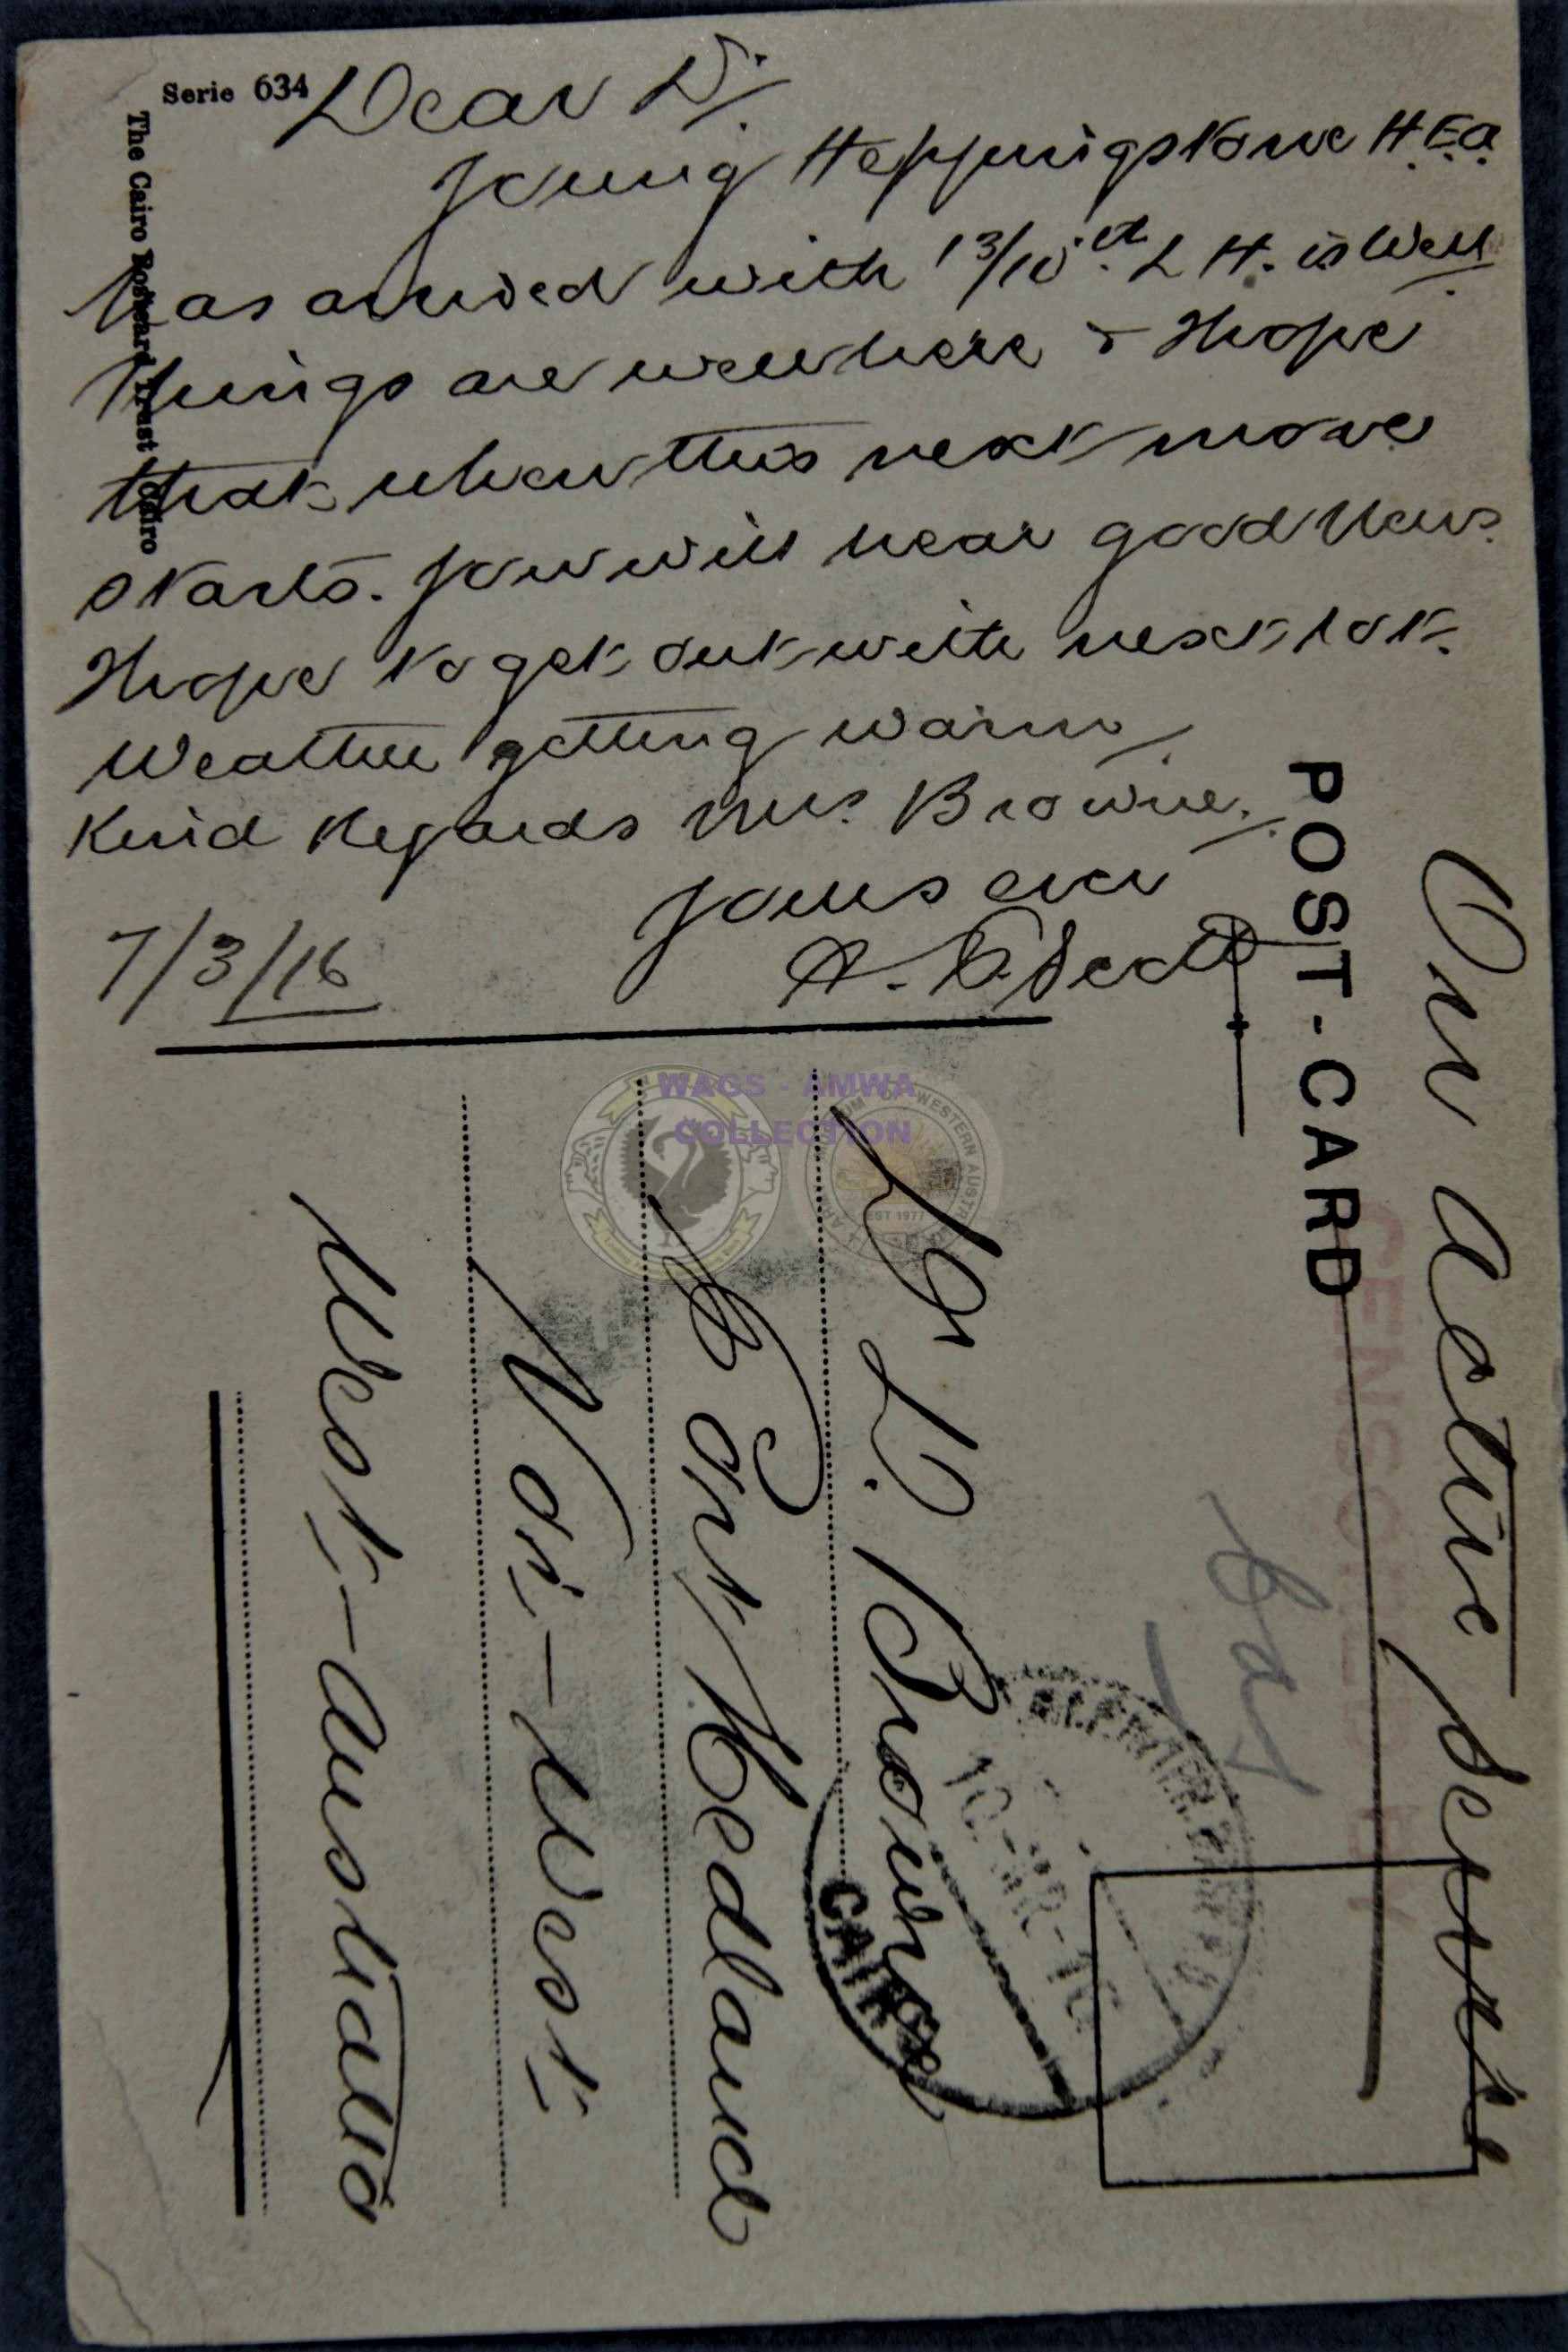 Serie 634
The Cairo Postcard Trust Cairo
Dear D.
Young Heppingstone H.E.A.
has arrived with 13/10th L H. is Well
Things are well here & I hope
that when this next move
starts. you will hear good News
I hope to get out with next lot.
Weather getting warm
Kind Regards Mrs. Browne.
Yours ever
7/3/16
POST-CARD
On Active Service
CENSORED BY
Mr L. Browne
Port Hedland
Nor-West.
West-Australia
CAIRO
WAGS - AMWA
COLLECTION
EST 1977